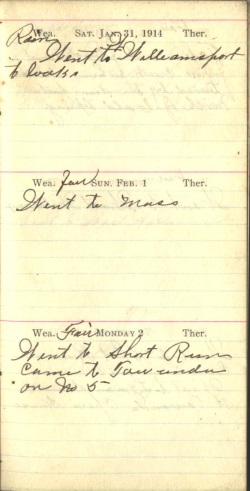 Wea. SAT. JAN. 31, 1914 Ther.
Rain
Went to Williamsport
to
Wea. Fair SUN. FEB. 1 Ther.
Went to Mass
Wea. Fair MONDAY 2 Ther.
Went to Short Run
Came to Towanda
on No 5